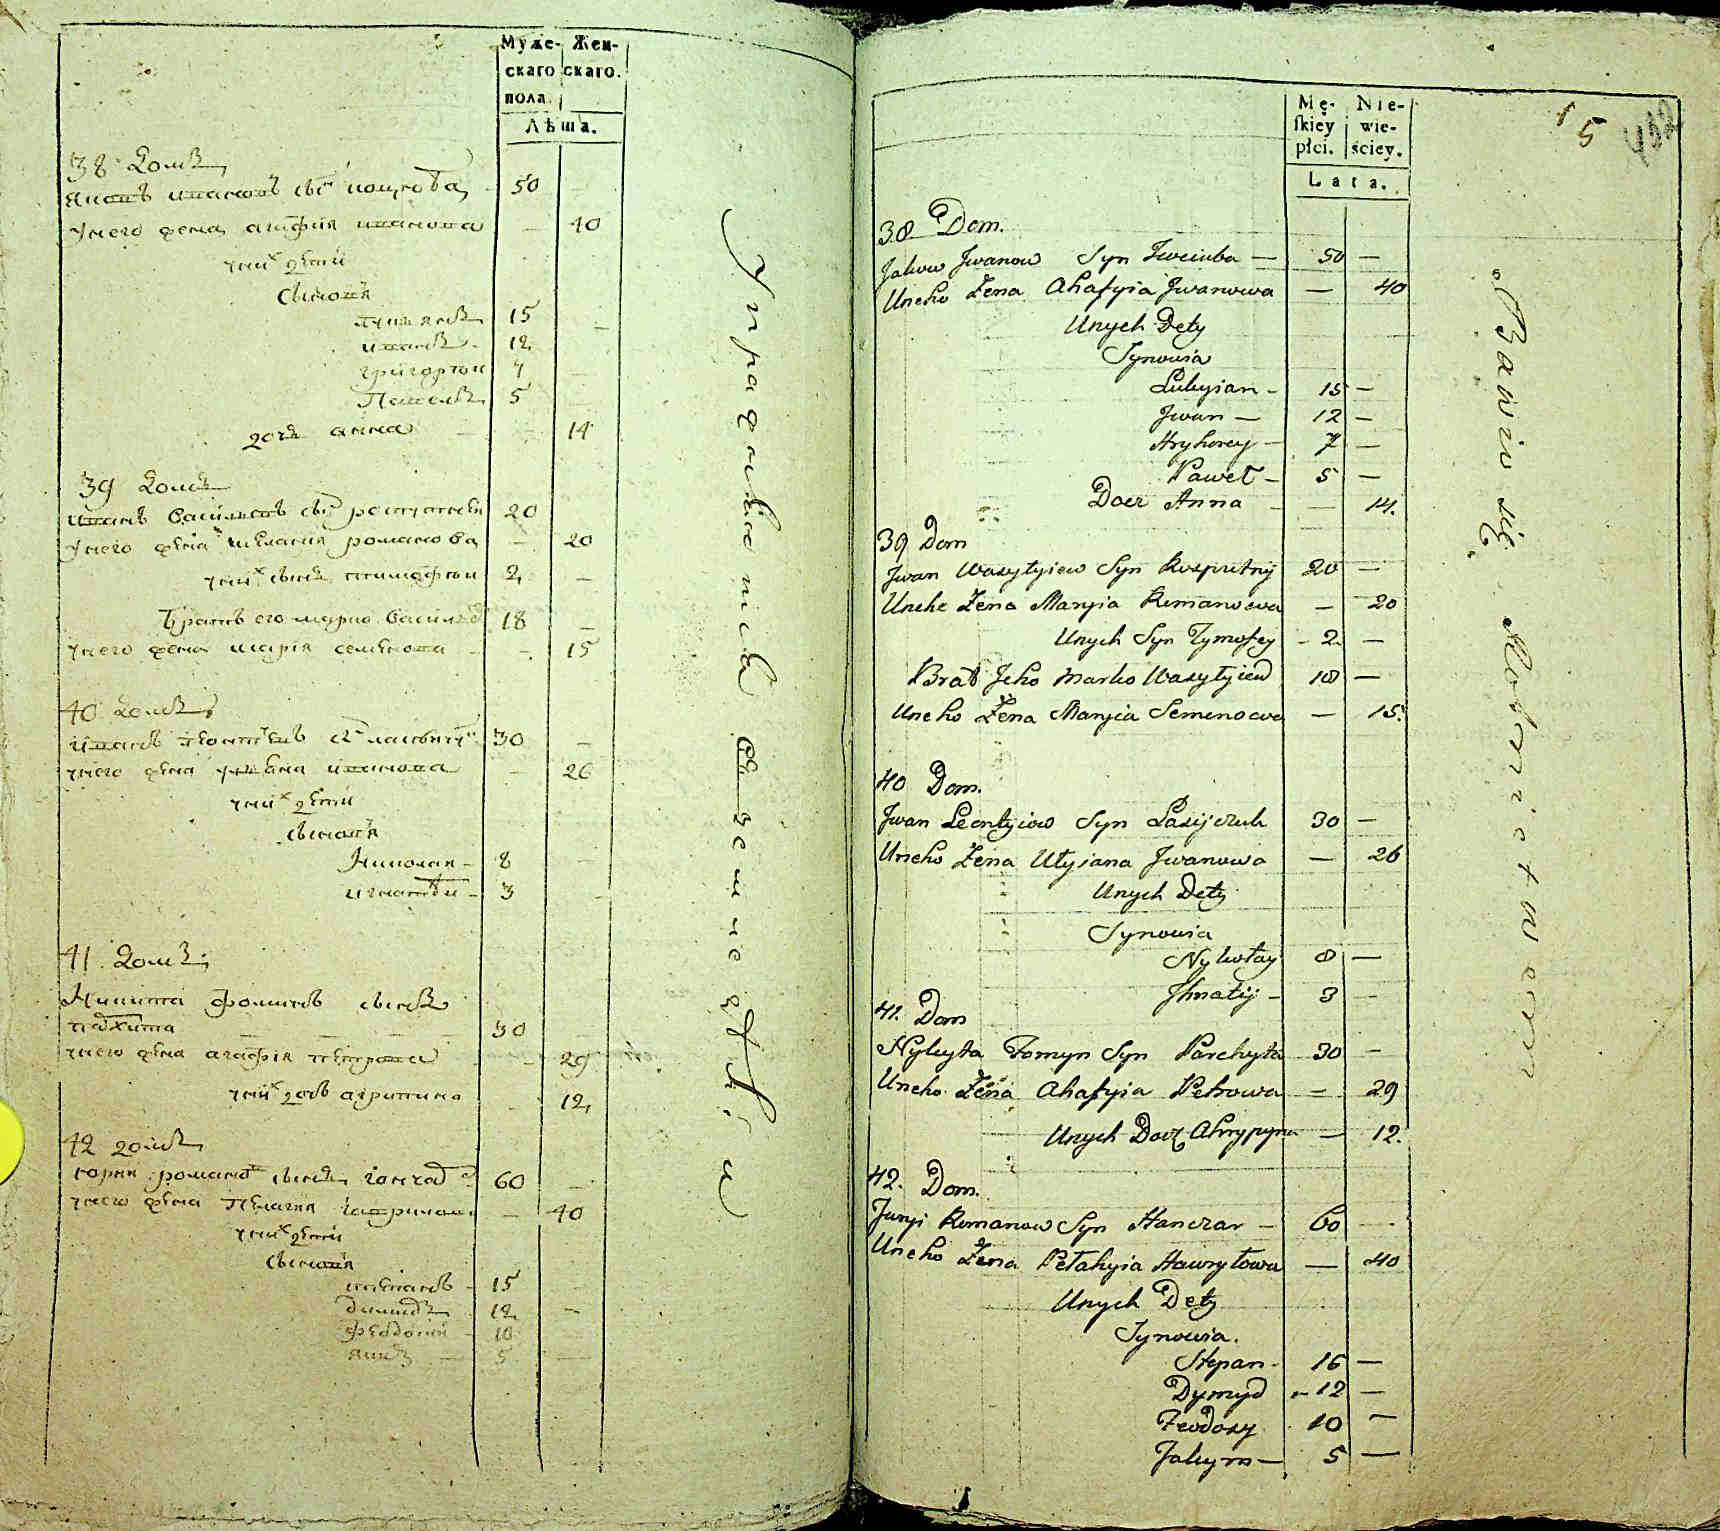 Муже- Жен-
скаго скаго.
пола.
Лѣта.
38 домъ
Яковъ ивановъ снъ 50
у него жена агафия иванова — 40
у них дѣти
сыновя
лукиянъ 15
иванъ 12
григорей 7
Павелъ 5
дочь анна — 14
39 домъ
иванъ василиевъ снъ 20
у него жена мелания романова — 20
у них сынъ тимофей 2 —
братъ его марко 18 —
у него жена мария семенова — 15
40 домъ
иванъ леонтиевъ снъ 30 —
у него жена улиана иванова — 26
у них дѣти
сыновя
Николай — 8 —
игнатий — 3 —
41 домъ
Никита фоминъ сынъ
пархита 30
у него жена агафия петрова — 29
у них дочь агрипина — 12
42 домъ
юрий романовъ сынъ гончар 60 —
у него жена Пелагия гаврилова — 40
у них дѣти
сыновя
степанъ — 15
димидъ 12 —
феодосий 10
якимъ — 5 —
упражняется въ земледѣлии
Mę- Nie-
skiey wie-
płci. ściey.
Lata.
15
38 Dom.
Jakow Jwanow Syn — 50 —
Uneho Żena Ahafyia Jwanowa — 40
Unych Dety
Synowia
Lukyian — 15 —
Jwan — 12 —
Hryhorey — 7 —
Paweł — 5 —
Docz Anna — 14.
39 Dom
Jwan Wasyłyiew Syn Rozputnij 20 —
Uneho Żena Maryia Romanowa — 20
Unych Syn Tymofey — 2. —
Brat Jeho Marko Wasyłyiew 18 —
Uneho Żena Maryia Semenowa — 15.
40 Dom.
Jwan Leontyiow Syn Lasijczuk 30 —
Uneho Żena Ułyiana Jwanowa — 26
Unych Dety
Synowia
Nykołay 8 —
Jhnatij — 3 —
41. Dom
Nykyta Fomyn Syn Parchyta 30 —
Uneho Żena Ahafyia Petrowa — 29
Unych Docz Ahrypyna — 12.
42. Dom.
Juryi Romanow Syn Hanczar — 60 —
Uneho Żena Pełahyia Hawryłowa — 40
Unych Dety
Synowia.
Stepan — 15 —
Dymyd — 12 —
Feodosy 10 —
Jakym — 5 —
Bawią się Rolnictwem